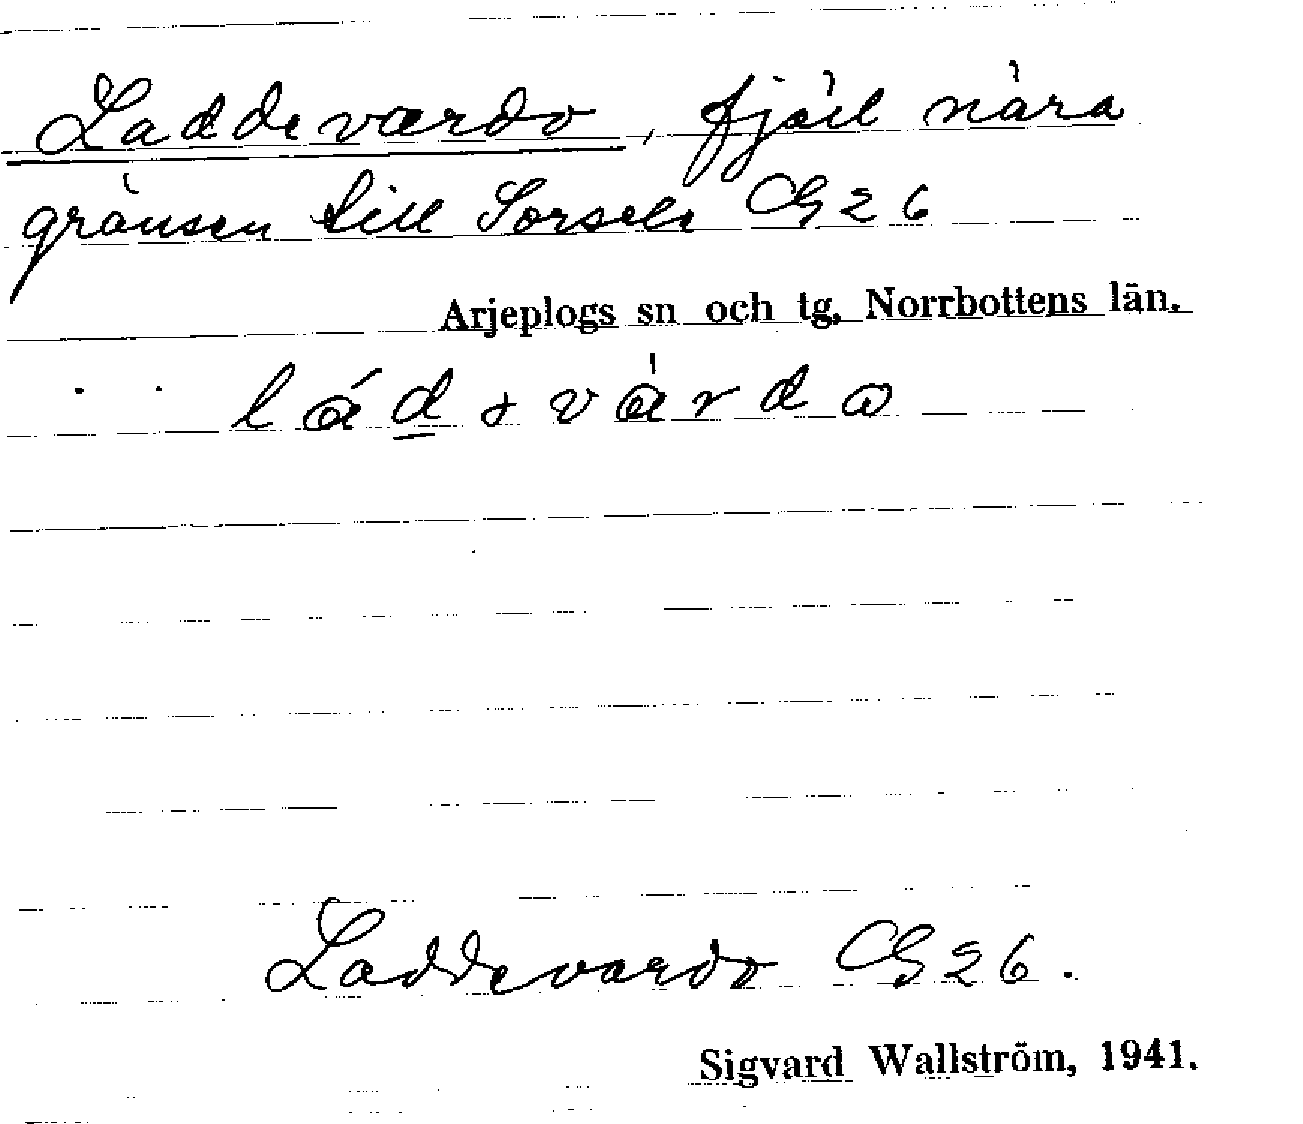 Laddevardo, fjäll nära
gränsen till Sorsele CG 26
Arjeplogs sn och tg, Norrbottens län.
Laddevardo CG 26.
Sigvard Wallström, 1941.